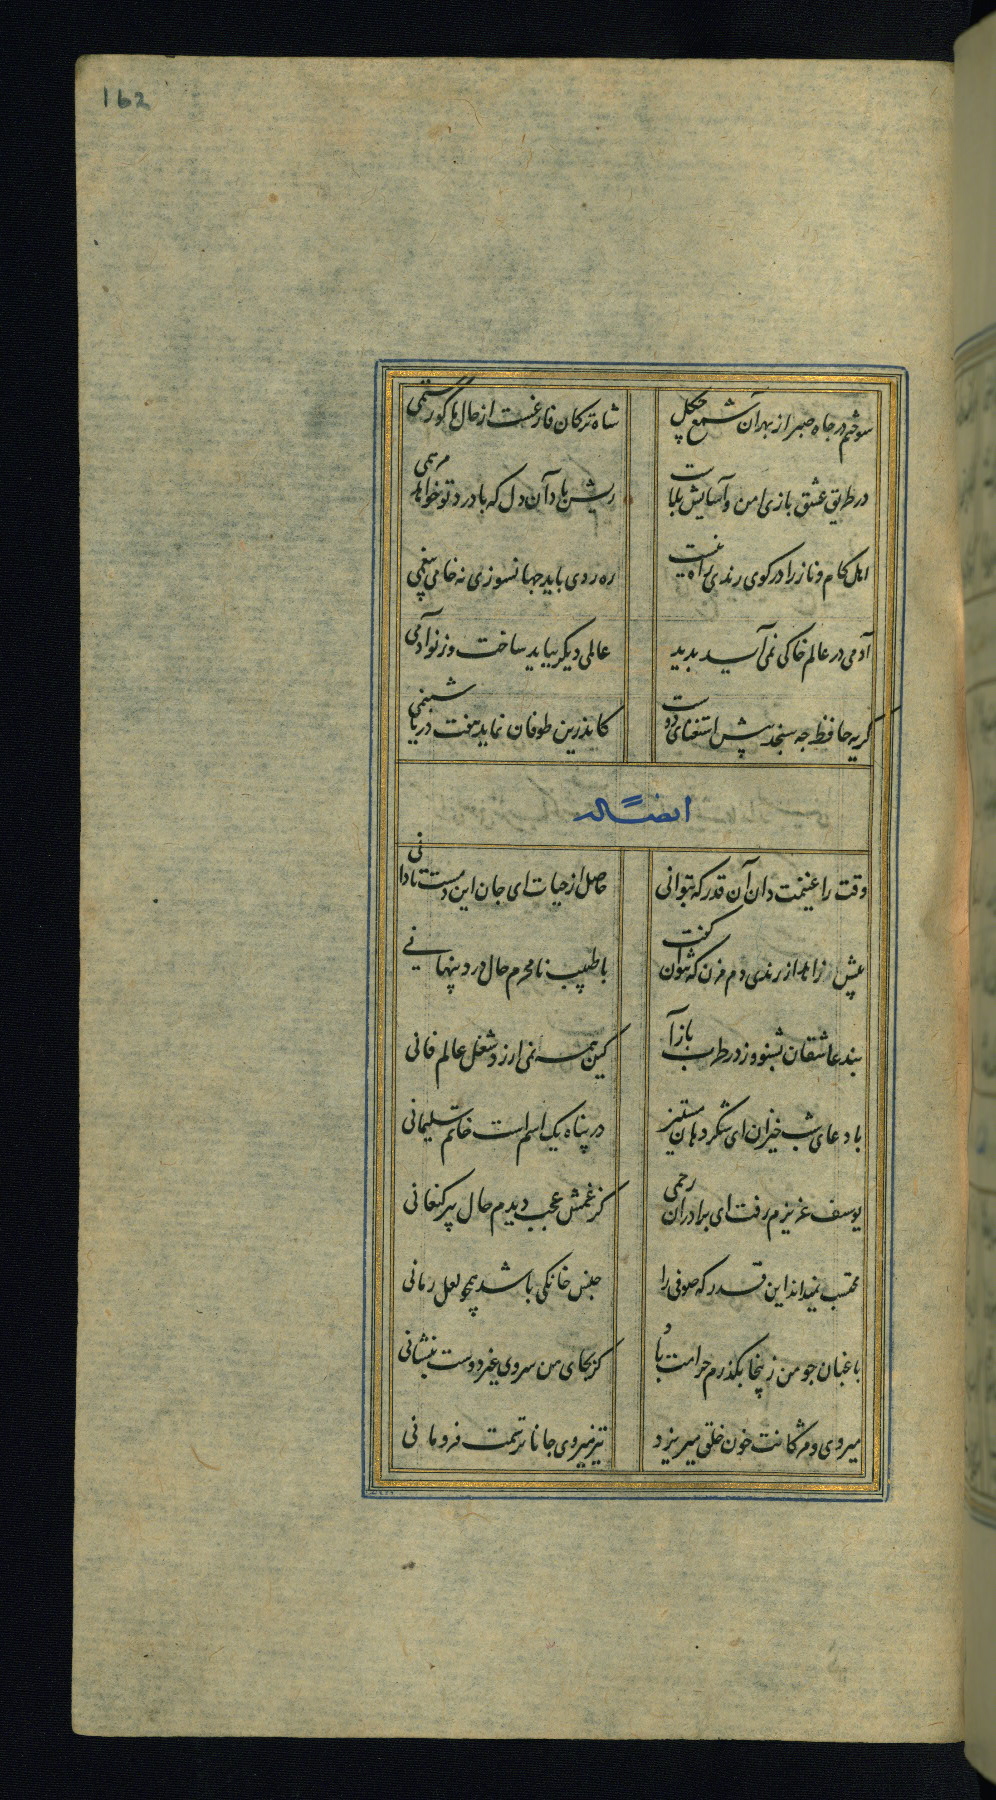 162
سوختم در چاه صبر از بهر آن شمع چکل
شاه ترکان فارغست از حال ما کو رستمی
در طریق عشق بازی امن و آسایش بلاست
ریش باد آن دل که با درد تو خواهد مرهمی
اهل کام و ناز را در کوی رندی راه نیست
ره روی باید جهانسوزی نه خامی بیغمی
آدمی در عالم خاکی نمی آید بدید
عالمی دیگر بباید ساخت وز نو آدمی
کریه حافظ جه سنجد پیش استغنای دوست
کاندرین طوفان نماید هفت دریا شبنمی
ایضاً له
وقت را غنیمت دان آن قدر که بتوانی
حاصل از حیات ای جان این دمست تا دانی
پیش زاهد از رندی دم مزن که نتوان گفت
با طبیب نامحرم حال درد پنهانی
بند عاشقان بشنو وز در طرب بازآ
کین همه نمی ارزد شغل عالم فانی
با دعای شب خیزان ای شکر دهان مستیز
در پناه یک اسم است خاتم سلیمانی
یوسف عزیزم رفت ای برادران رحمی
کز غمش عجب دیدم حال پیر کنعانی
محتسب نمیداند این قدر که صوفی را
جنس خانکی باشد همچو لعل رمانی
باغبان جو من زینجا بکذرم حرامت باد
کر بجای من سروی غیر دوست بنشانی
میروی و مژکانت خون خلق میریزد
تیز میروی جانا ترسمت فرو مانی